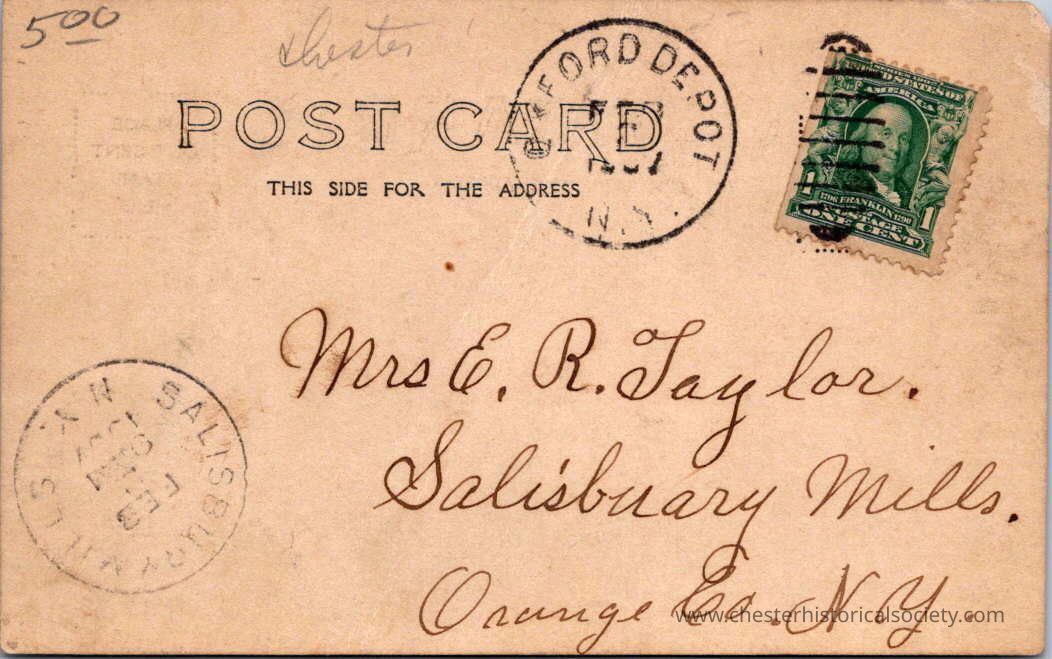 5 00
Chester
POST CARD
THIS SIDE FOR THE ADDRESS
OXFORD DEPOT
FEB
N.Y.
SERIES 1902
UNITED STATES OF
AMERICA
1
1706 FRANKLIN 1790
1
POSTAGE
ONE CENT
Mrs E. R. Taylor.
Salisbuary Mills.
Orange Co. N.Y.
SALISBURY MILLS N.Y.
FEB
8 AM
1907
www.chesterhistoricalsociety.com